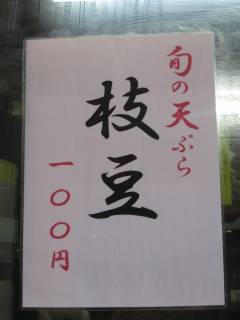 旬の天ぷら
枝豆
一〇〇円